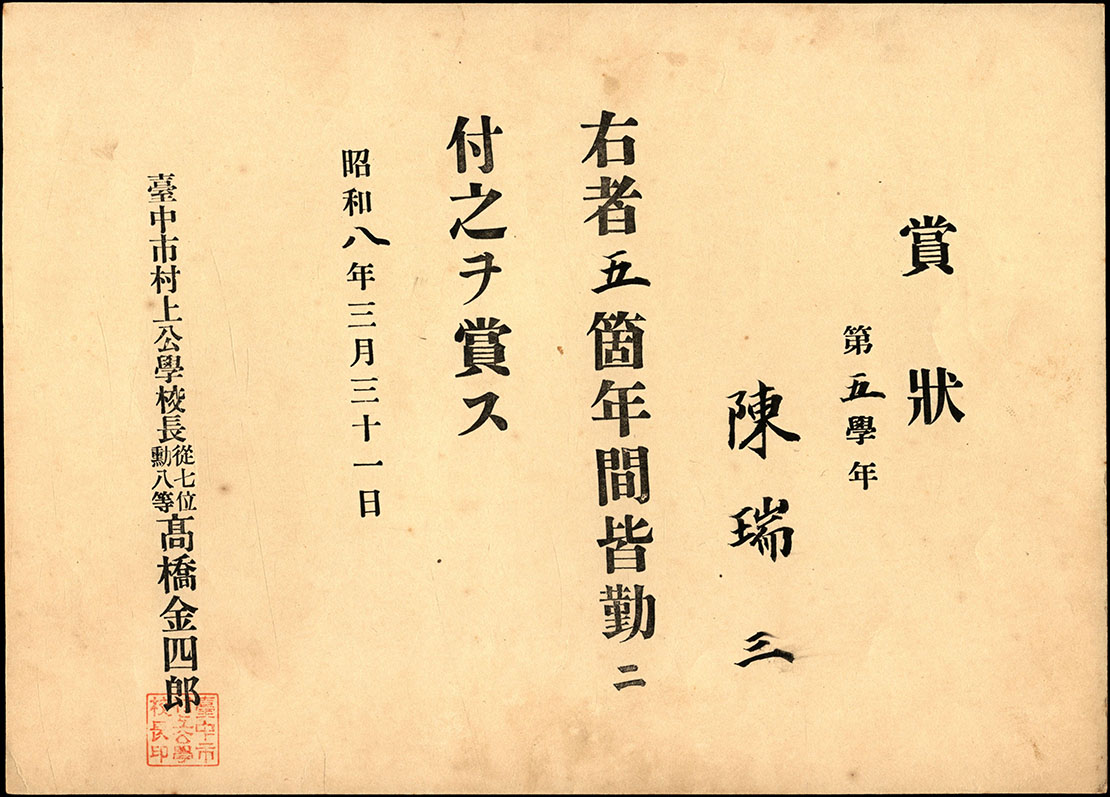 賞狀
第五學年
陳瑞三
右者五箇年間皆勤ニ
付之ヲ賞ス
昭和八年三月三十一日
臺中市村上公學校長從七位勳八等髙橋金四郎
臺中市
上公學
校長印